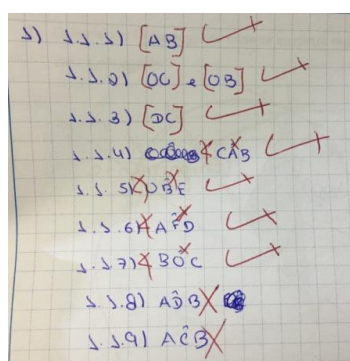 1) 1.1.1) [AB]
1.1.2) [OC] e [OB]
1.1.3) [DC]
1.1.4) ∢ CÂB
1.1.5) ∢ DB̂E
1.1.6) ∢ AF̂D
1.1.7) ∢ BÔC
1.1.8) AD̂B
1.1.9) AĈB